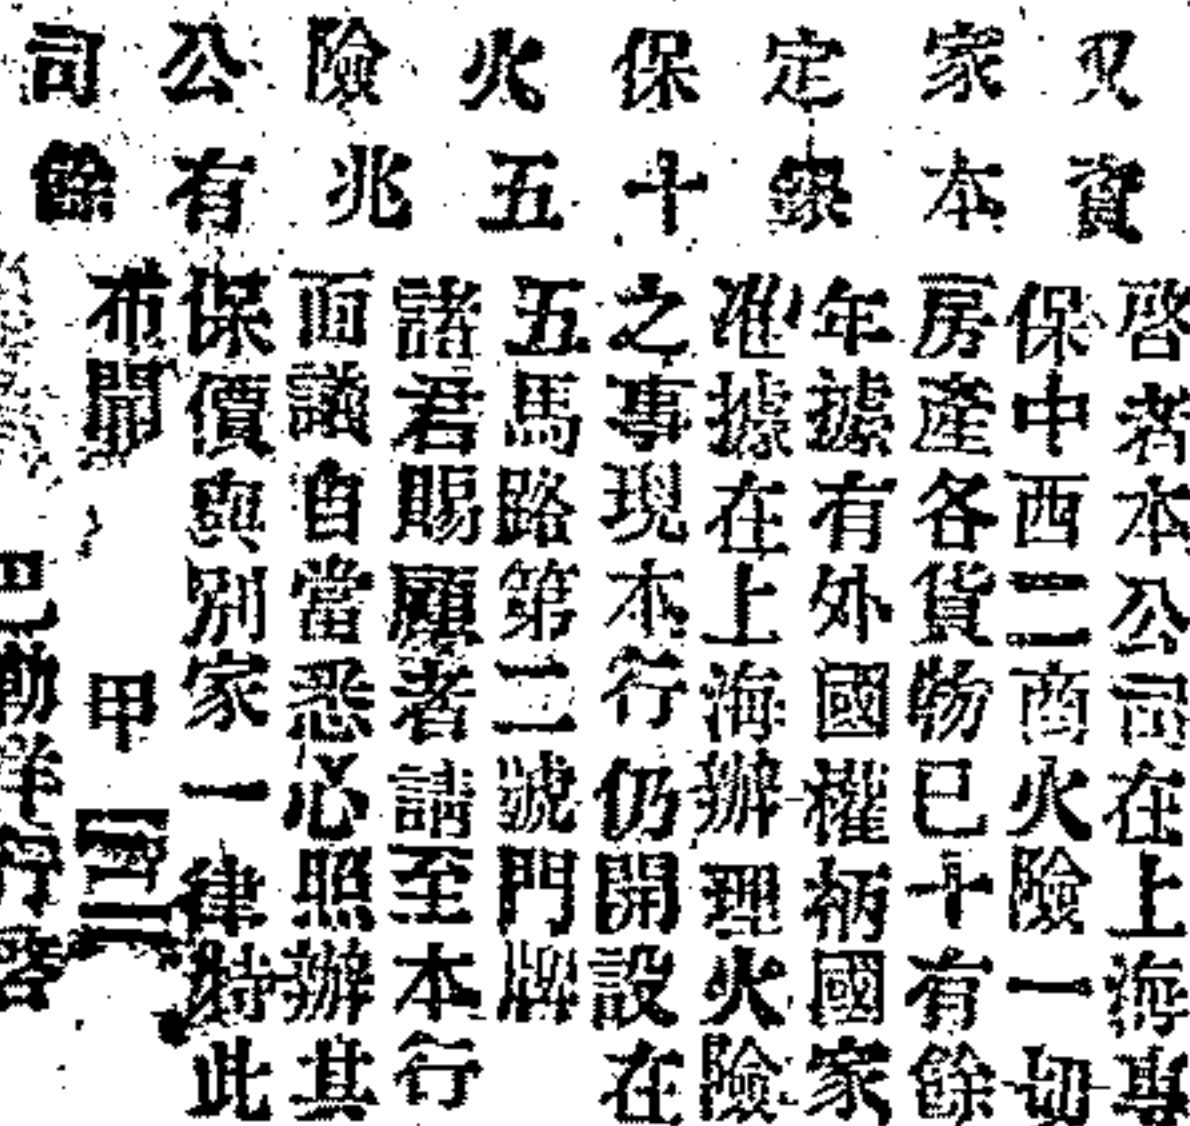 又家定保火險公司
資本銀十五兆有餘
啓者本公司在上海專
保中西二商火險一切
房產各貨物已十有餘
年據有外國權柄國家
准據在上海辦理火險
之事現本行仍開設在
五馬路第二號門牌
諸君賜顧者請至本行
面議自當悉心照辦其
保價與別家一律特此
布聞 甲
巴勒洋行啓